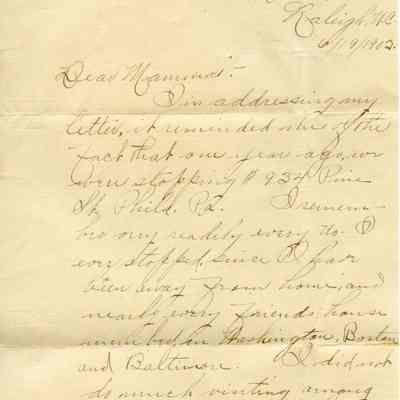 Raleigh, N.C.
6/19/1902.
Dear Mamma:-
In addressing my
letter, it reminded me of the
fact that one year ago, we
were stopping # 934 Pine
St, Phila. Pa. I remem-
ber very readily every No. I
ever stopped, since I have
been away from home, and
nearly every friends house
number, in Washington, Boston
and Baltimore. I did not
do much visiting among